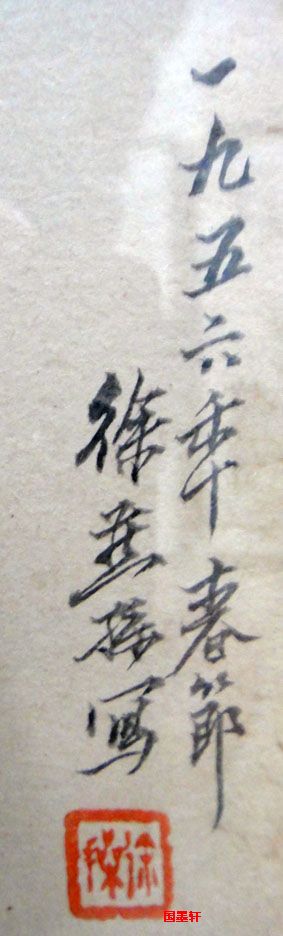 一九五六秊春節
徐燕孫寫
徐操
国墨轩